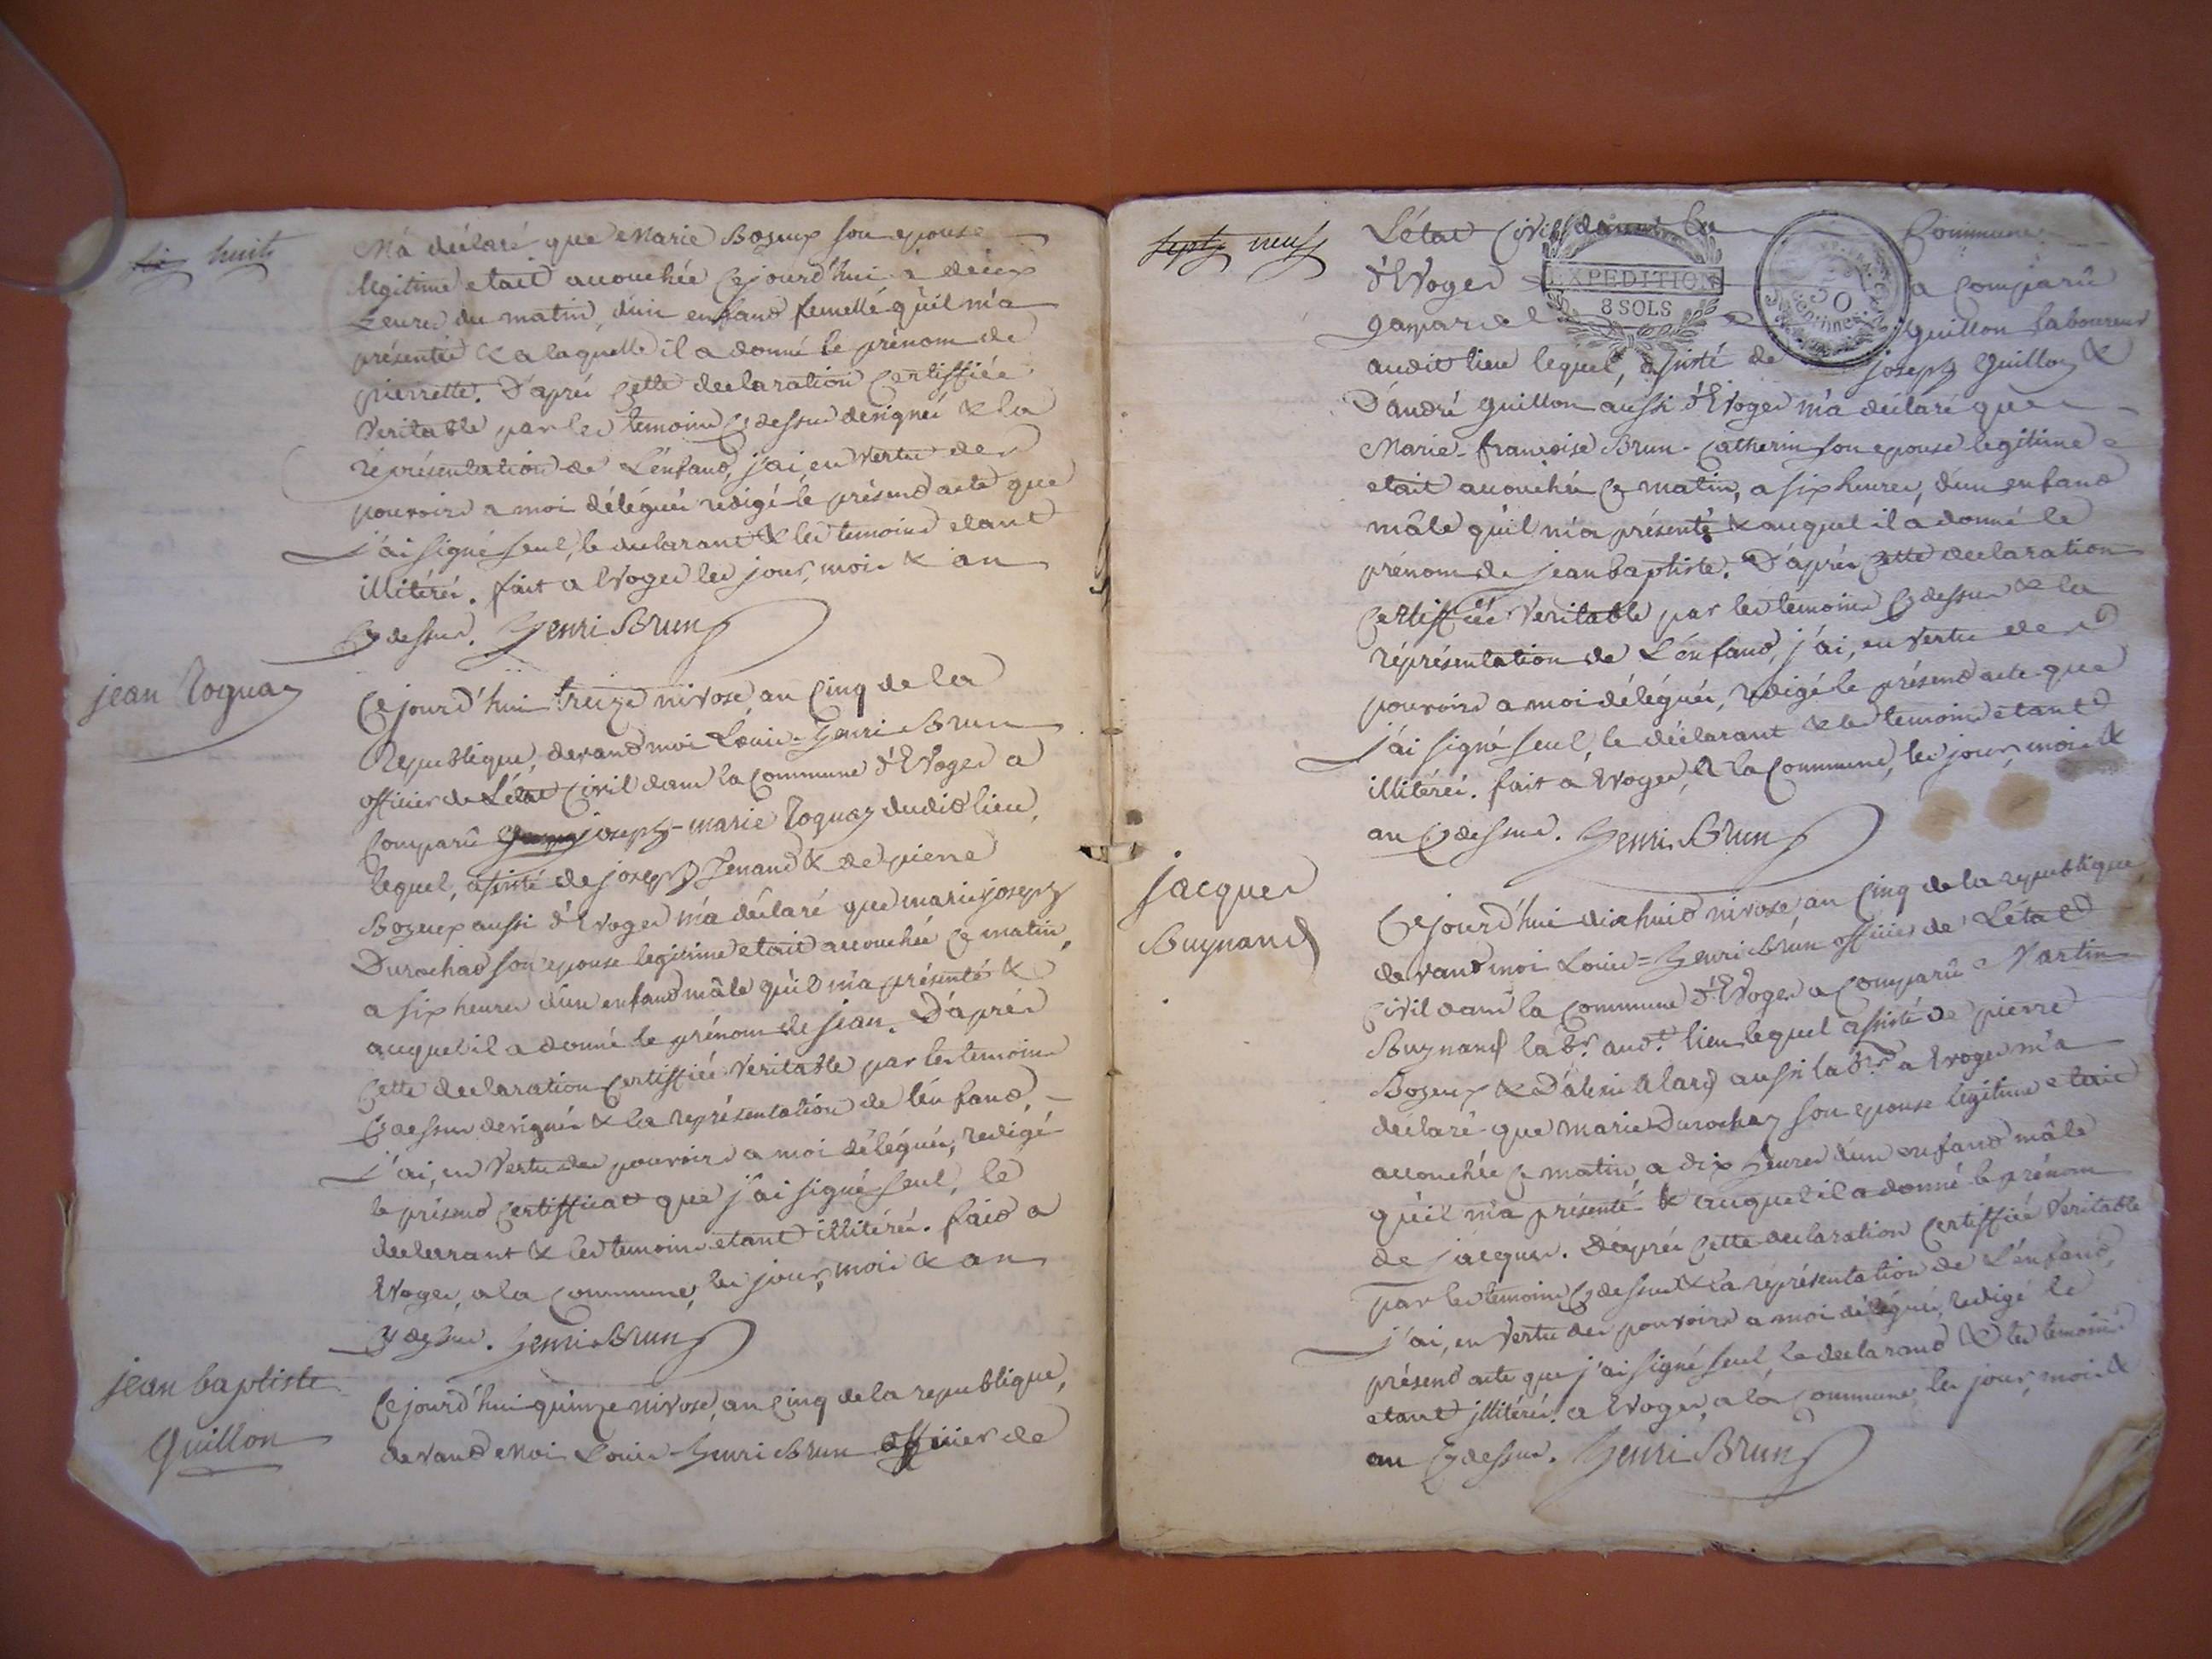 six huit
Má déclaré que Marie Bozeux son epouse
légitime etait accouchée Cejourd'hui a deux
heures du matin, d'un enfand femelle qu'il m'a
présentée & a laquelle il a donné le prénom de
pierrette. D'aprés Cette declaration Certiffiée
Veritable par les temoins Cy dessus designés & la
représentation de L'enfand, j'ai, en vertu des
pouvoirs a moi délégués redigé le présend acte que
J'ai signé seul, le declarant & les temoins etant
illitérés. fait a Evoges les jour, mois & an
Cy dessus. Henri Brun
jean Roguaz
Cejourd'hui treize nivose, an Cinq de la
Republique, devand moi Louis-Henri Brun
officier de L'état Civil dans la Commune d'Evoges a
Comparû joseph-marie Roguaz dudit lieu,
lequel, assisté de joseph Henand & de pierre
Bozeux aussi d'Evoges m'a déclaré que marie joseph
Durochad son epouse legitime etait accouchée Ce matin,
a six heures d'un enfand mâle qu'il m'a présenté &
auquel il a donné le prénom de Jean. D'aprés
Cette declaration Certiffiée Veritable par les temoins
Cy dessus designés & la représentation de l'enfand,
J'ai, en Vertu des pouvoirs a moi délégués, redigé
le présend Certifficat que j'ai signé seul, le
declarant & les temoins etant illitérés. faid a
Evoges, a la Commune, les jour, mois & an
Cy dessus. Henri Brun
jean baptiste
Guillon
Cejourd'hui quinze nivose, an Cinq de la republique,
devand Moi Louis-Henri Brun officier de
sept neuf
L'état Civil dans la Commune
d'Evoges a Comparû
EXPEDITION
8 SOLS
Guillon laboureur
audit lieu lequel, assisté de joseph Guillon &
D'andré Guillon aussi d'Evoges m'a déclaré que
Marie-françoise Brun-Catherin son epouse legitime
etait accouchée Ce matin, a six heures, d'un enfand
mâle qu'il m'a présenté & auquel il a donné le
prénom de jean baptiste. D'aprés Cette declaration
Certiffiée Veritable par les temoins Cy dessus & la
représentation de L'enfand, j'ai, en Vertu des
pouvoirs a moi délégués, redigé le présend acte que
J'ai signé seul, le déclarant & les temoins etant
illitérés. fait a Evoges, A la Commune, les jour, mois &
an Cy dessus. Henri Brun
jacques
Buynand
Cejourd'hui dix huid nivose, an Cinq de la republique,
devand moi Louis=Henri Brun officier de L'état
Civil dans la Commune d'Evoges a Comparû Martin
Buynand labr. audt. lieu lequel assisté de pierre
Bozeux & D'alexis Alard aussi labrs. a Evoges m'a
déclaré que marie Durochaz son epouse légitime etait
accouchée Ce matin, a dix heures d'un enfand mâle
qu'il m'a présenté & auquel il a donné le prénom
de jacques. D'aprés Cette declaration Certiffiée Veritable
par les temoins Cy dessus & la représentation de L'enfand,
J'ai, en Vertu des pouvoirs a moi délégués, redigé le
présend acte que j'ai signé seul, le declarand & les temoins
etant illitérés. a Evoges, a la Commune les jour, mois &
an Cy dessus. Henri Brun